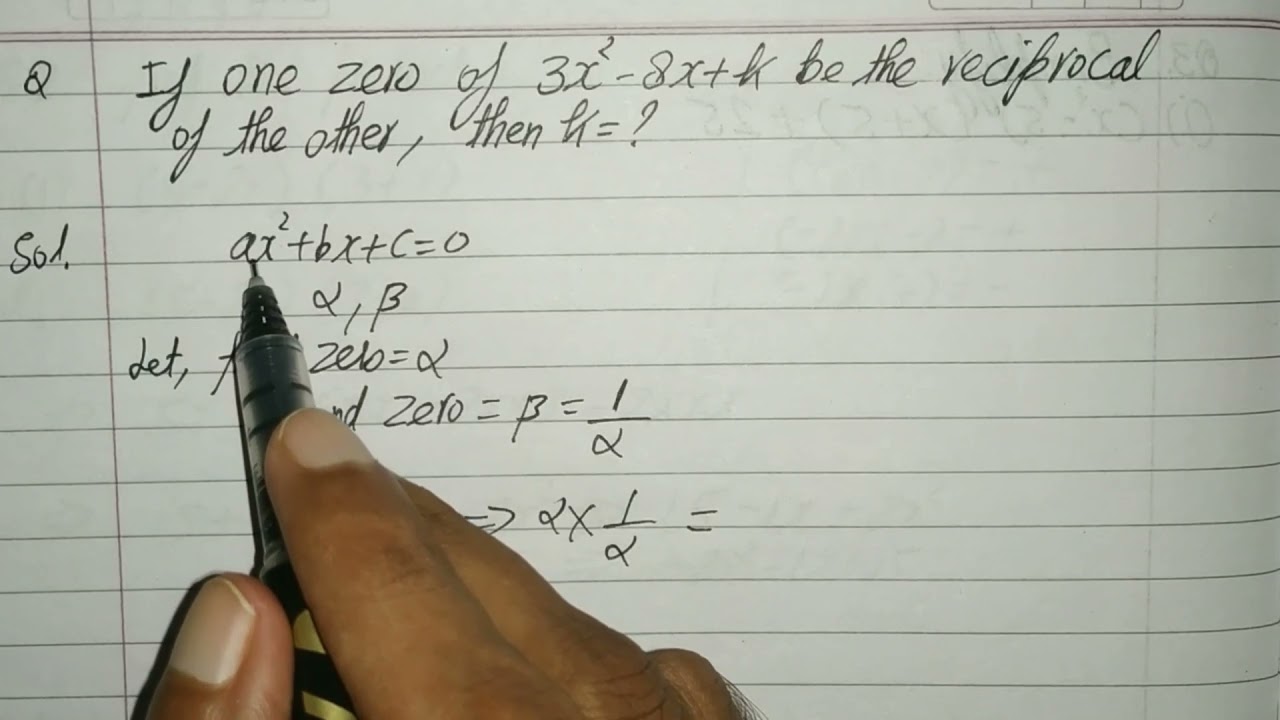 Q If one zero of 3x²-8x+k be the reciprocal
of the other, then k=?
Sol. ax²+bx+c=0
α, β
Let, zero=α
zero = β = 1/α
⇒ α × 1/α =